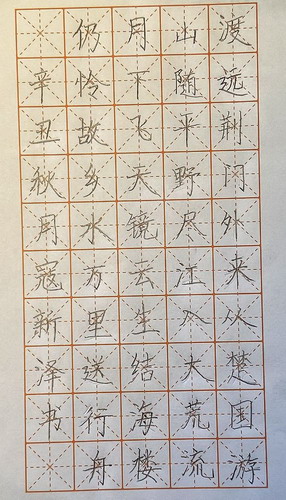 渡远荆门外来从楚国游
山随平野尽江入大荒流
月下飞天镜云生结海楼
仍怜故乡水万里送行舟
辛丑秋月寇新泽书